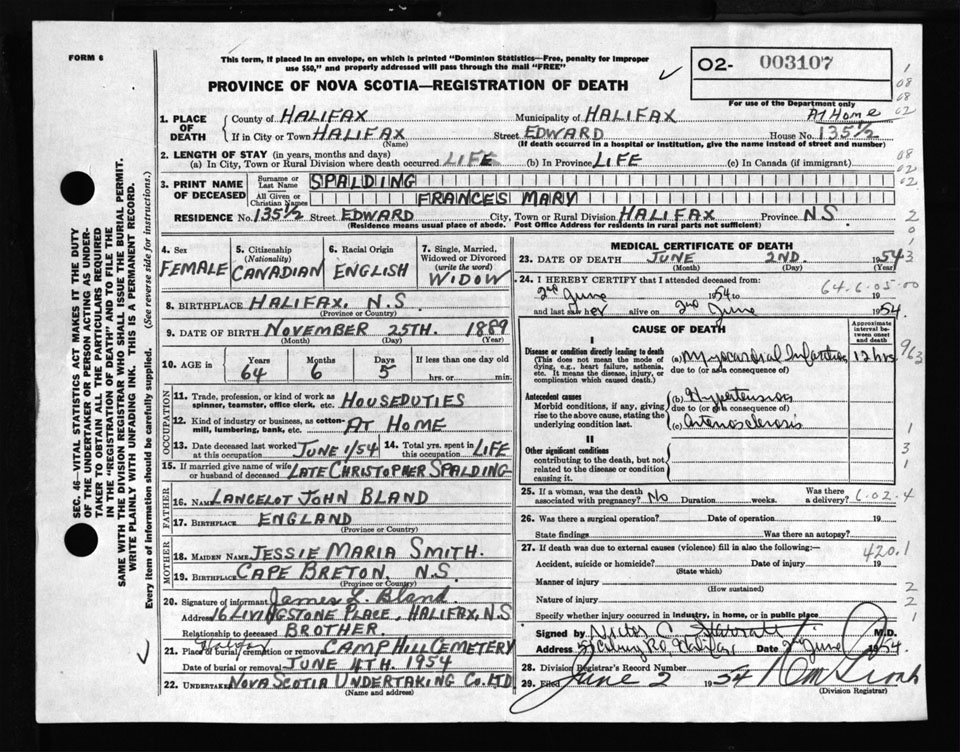 FORM 6
This form, if placed in an envelope, on which is printed "Dominion Statistics—Free, penalty for improper
use $50," and properly addressed will pass through the mail "FREE"
PROVINCE OF NOVA SCOTIA—REGISTRATION OF DEATH
02- 003107
For use of the Department only
1. PLACE OF DEATH
County of HALIFAX Municipality of HALIFAX At Home
If in City or Town HALIFAX Street EDWARD House No. 135½
(Name) (If death occurred in a hospital or institution, give the name instead of street and number)
2. LENGTH OF STAY (in years, months and days)
(a) In City, Town or Rural Division where death occurred LIFE (b) In Province LIFE (c) In Canada (if immigrant)
3. PRINT NAME OF DECEASED
Surname or Last Name SPALDING
All Given or Christian Names FRANCES MARY
RESIDENCE No. 135½ Street EDWARD City, Town or Rural Division HALIFAX Province N.S
(Residence means usual place of abode. Post Office Address for residents in rural parts not sufficient)
4. Sex FEMALE
5. Citizenship (Nationality) CANADIAN
6. Racial Origin ENGLISH
7. Single, Married, Widowed or Divorced (write the word) WIDOW
8. BIRTHPLACE HALIFAX, N.S
(Province or Country)
9. DATE OF BIRTH NOVEMBER 25TH. 1889
(Month) (Day) (Year)
10. AGE in Years 64 Months 6 Days 5 If less than one day old hrs. or min.
11. Trade, profession, or kind of work as spinner, teamster, office clerk, etc. HOUSEDUTIES
12. Kind of industry or business, as cotton-mill, lumbering, bank, etc. AT HOME
13. Date deceased last worked at this occupation JUNE 1/54 14. Total yrs. spent in this occupation LIFE
15. If married give name of wife or husband of deceased LATE CHRISTOPHER SPALDING
FATHER
16. NAME LANCELOT JOHN BLAND
17. BIRTHPLACE ENGLAND
(Province or Country)
MOTHER
18. MAIDEN NAME JESSIE MARIA SMITH.
19. BIRTHPLACE CAPE BRETON, N.S
(Province or Country)
20. Signature of informant James L. Bland
Address 16 LIVINGSTONE PLACE, HALIFAX, N.S
Relationship to deceased BROTHER.
21. Place of burial, cremation or removal Halifax CAMP HILL CEMETERY
Date of burial or removal JUNE 4TH. 1954
22. UNDERTAKER NOVA SCOTIA UNDERTAKING CO. LTD
(Name and address)
MEDICAL CERTIFICATE OF DEATH
23. DATE OF DEATH JUNE 2ND. 1954
(Month) (Day) (Year)
24. I HEREBY CERTIFY that I attended deceased from: 64-6-05-00
2nd June 1954 to 19
and last saw her alive on 2nd June 1954.
CAUSE OF DEATH
Approximate interval between onset and death
I
Disease or condition directly leading to death
(This does not mean the mode of dying, e.g., heart failure, asthenia, etc. It means the disease, injury, or complication which caused death.)
(a) Myocardial Infarction 12 hrs.
due to (or as a consequence of)
Antecedent causes
Morbid conditions, if any, giving rise to the above cause, stating the underlying condition last.
(b) Hypertension
due to (or as a consequence of)
(c) Arteriosclerosis
II
Other significant conditions
contributing to the death, but not related to the disease or condition causing it.
25. If a woman, was the death associated with pregnancy? No Duration weeks. Was there a delivery? 6-02-4
26. Was there a surgical operation? Date of operation 19
State findings Was there an autopsy?
27. If death was due to external causes (violence) fill in also the following:— 420.1
Accident, suicide or homicide? Date of injury 19
(State which)
Manner of injury
(How sustained)
Nature of injury
Specify whether injury occurred in industry, in home, or in public place
Signed by M.D.
Address Date 2nd June 1954.
28. Division Registrar's Record Number
29. Filed June 2 1954
(Division Registrar)
SEC. 46—VITAL STATISTICS ACT MAKES IT THE DUTY
OF THE UNDERTAKER OR PERSON ACTING AS UNDER-
TAKER TO OBTAIN ALL THE PARTICULARS REQUIRED
IN THE "REGISTRATION OF DEATH" AND TO FILE THE
SAME WITH THE DIVISION REGISTRAR WHO SHALL ISSUE THE BURIAL PERMIT.
WRITE PLAINLY WITH UNFADING INK. THIS IS A PERMANENT RECORD.
Every item of information should be carefully supplied. (See reverse side for instructions.)